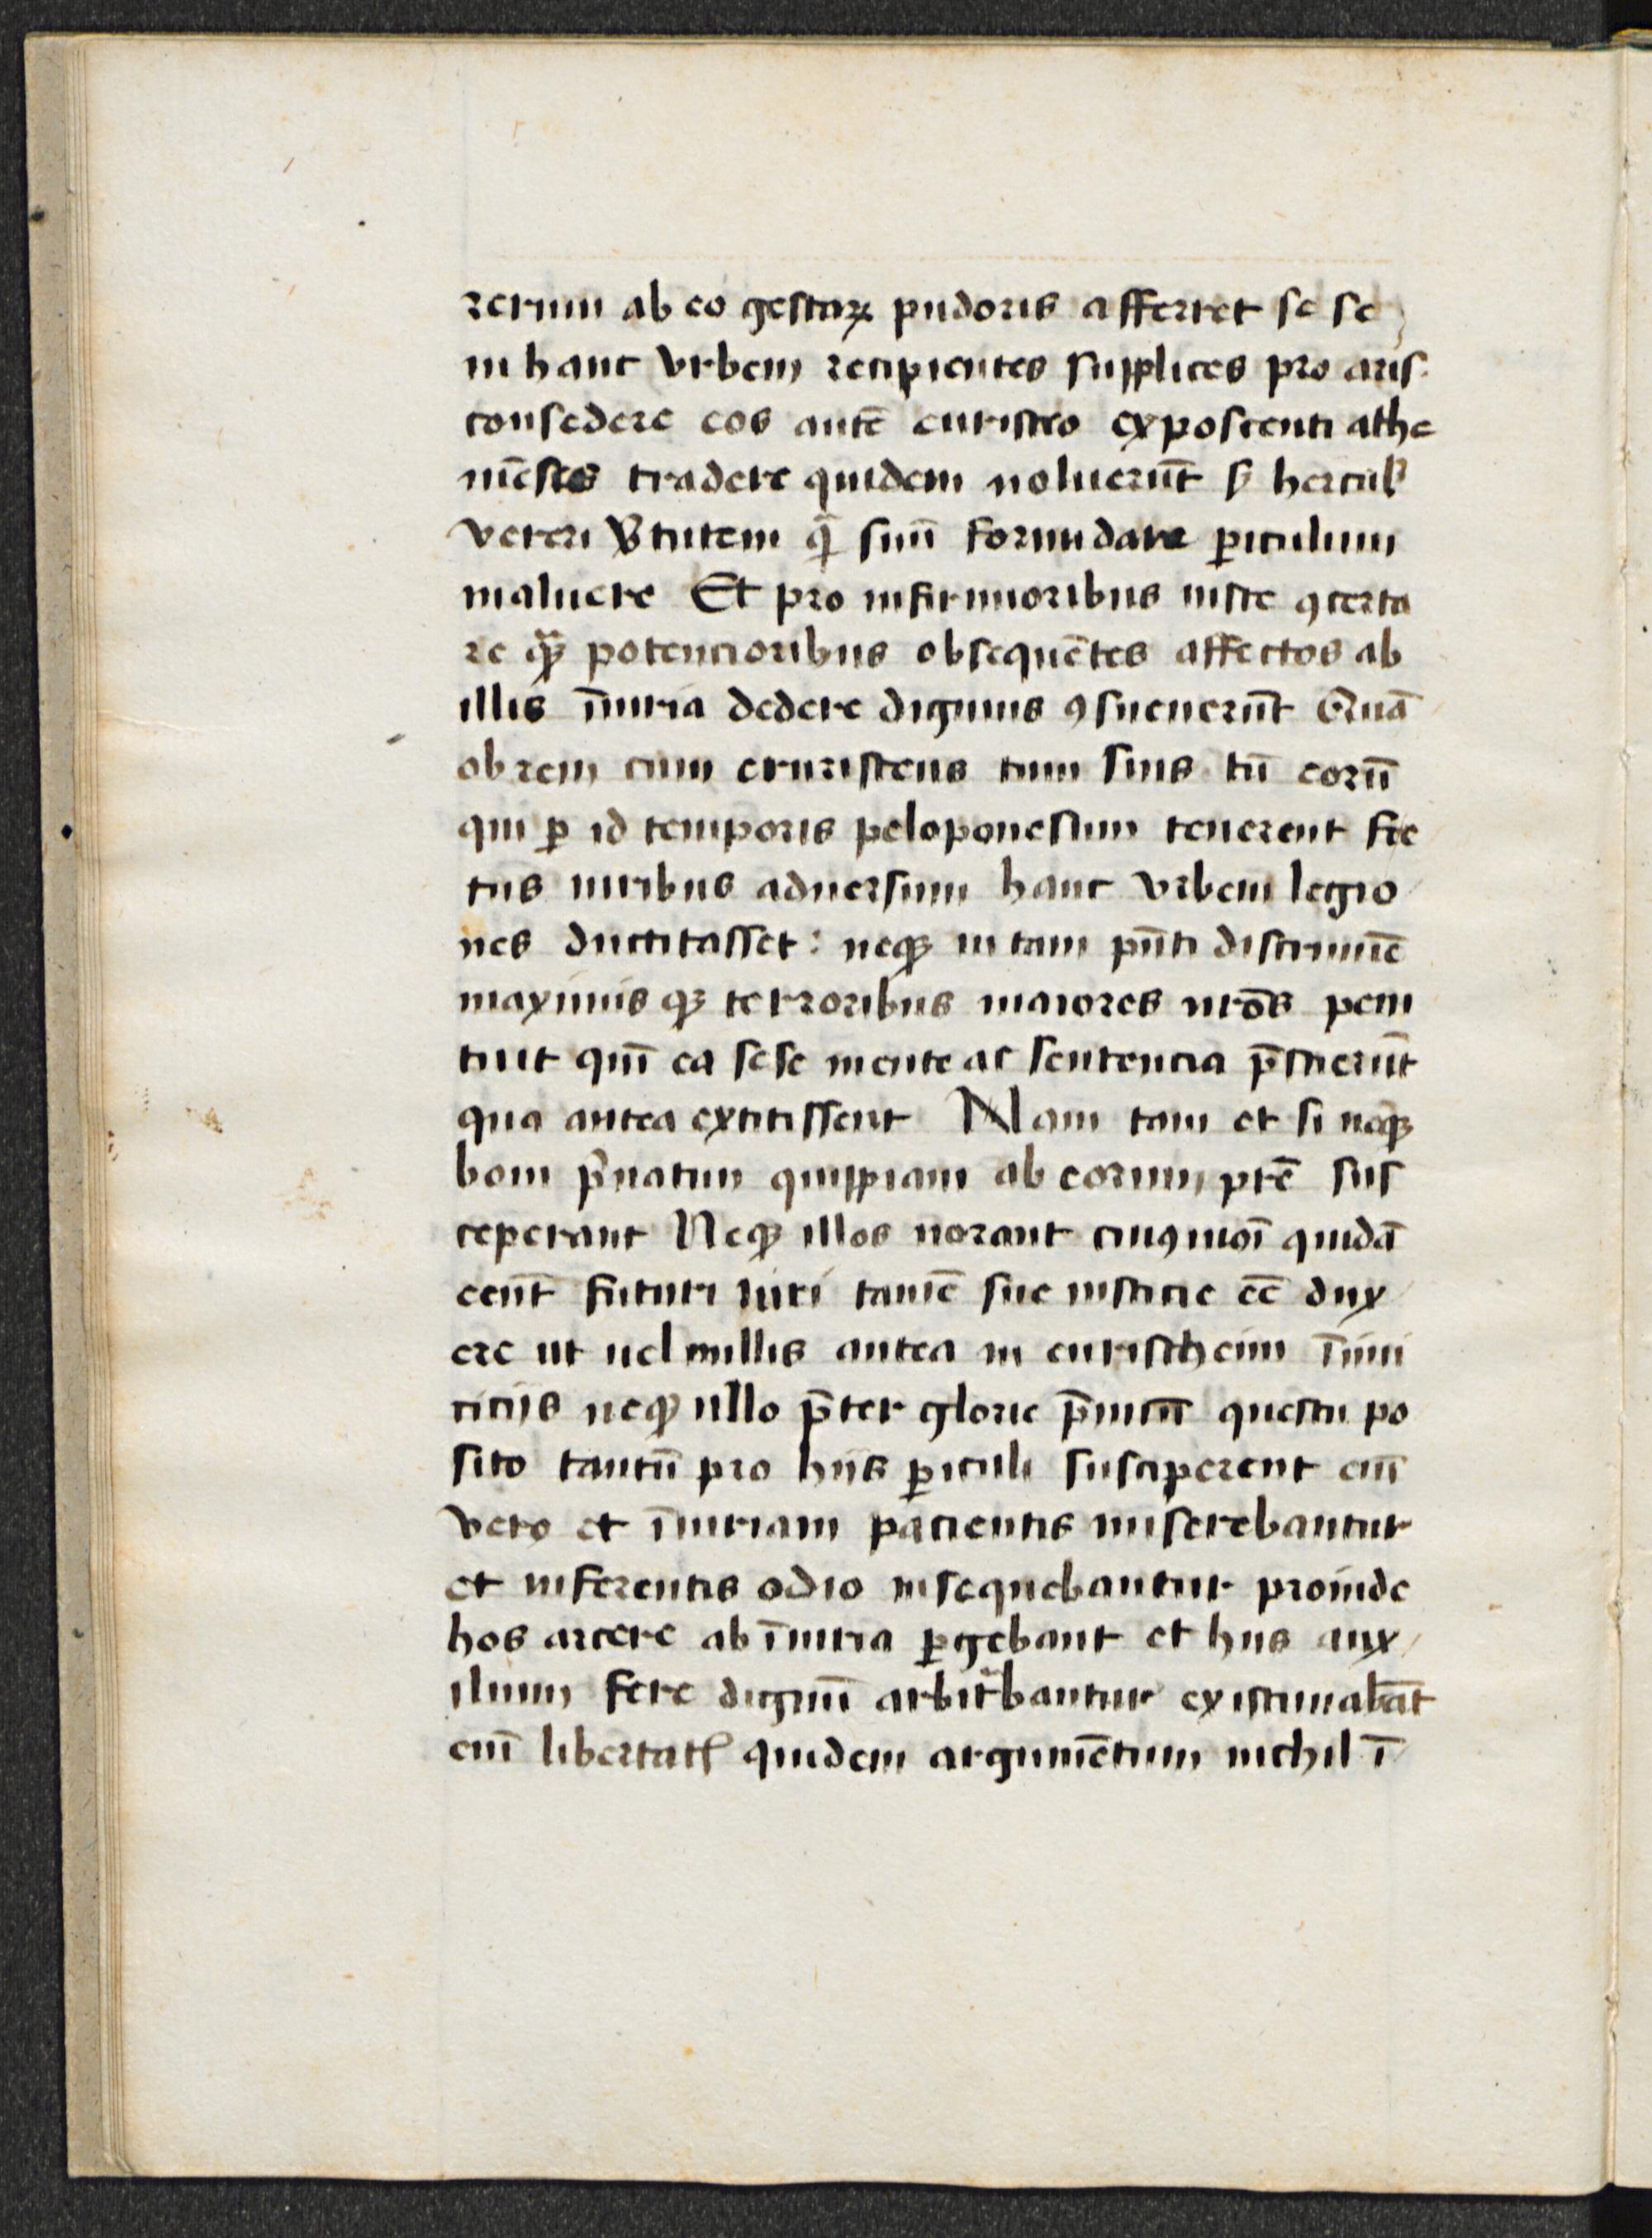 rerum ab eo gestaꝝ pudoris afferret se se
in hanc vrbem recipientes supplices pro aris
consedere eos autē euristeo exposcenti athe
niēses tradere quidem noluerūt sꝫ hercul
vereri v̾tutem q̄ȝ suū formidare ꝑiculum
maluere Et pro infirmioribus iuste ꝯcerta
re qȝ potencioribus obsequētes affectos ab
illis iniuria dedere dignius ꝯsueuerūt Quā
ob rem cum eruristeus tum suis tū eorū
qui ꝑ id temporis peloponesum tenerent fre
tus uiribus aduersum hanc vrbem legio
nes ductitasset: neqȝ in tam pn̄ti discrimīe
maximis qȝ terroribus maiores nr̄os peni
tuit quī ea sese mente ac sentencia p̄stiterūt
qua antea extitissent Nam tam et si neqȝ
boni p̾uatim quippiam ab eorum pr̄e sus
ceperant Neqȝ illos norant cuiꝰmōi quidā
eent futuri uiri tamē sue iusticie eē dux
ere ut uel nullis antea in euristheum īimi
ticijs neqȝ ullo p̄ter glorie p̄miū questu po
sito tantū pro hijs ꝑiculi susciperent eni
vero et īiuriam pacientis miserebantur
et inferentis odio insequebantur proinde
hos arcere ab īiuria ꝑgebant et hiis aux
ilium fere dignū arbitᵃbantur existimabāt
enī libertatꝭ quidem argumētum nichil ī